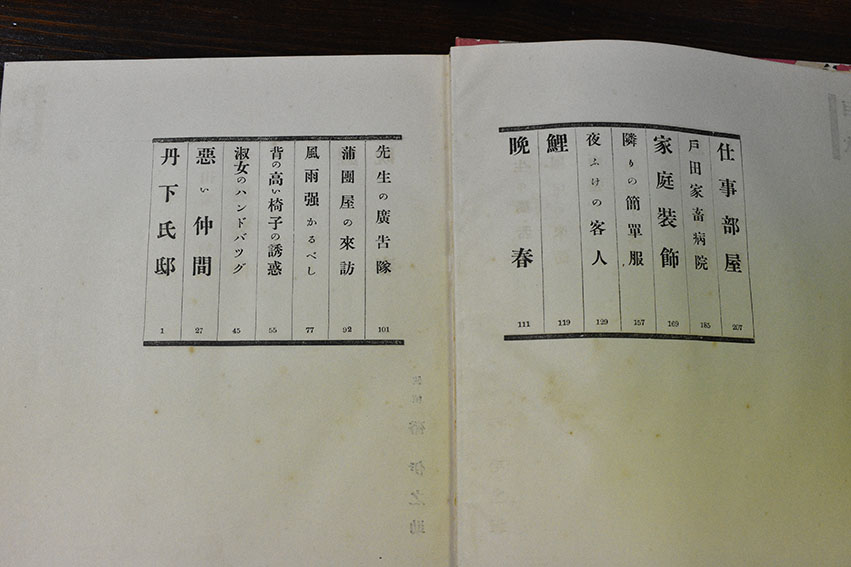 仕事部屋 207
戸田家畜病院 185
家庭裝飾 169
隣りの簡單服 157
夜ふけの客人 129
鯉 119
晩春 111
先生の廣告隊 101
蒲團屋の來訪 92
風雨强かるべし 77
背の高い椅子の誘惑 55
淑女のハンドバツグ 45
惡い仲間 27
丹下氏邸 1